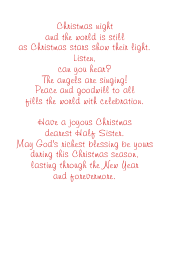 Christmas night
and the world is still
as Christmas stars show their light.
Listen,
can you hear?
The angels are singing!
Peace and goodwill to all
fills the world with celebration.

Have a joyous Christmas
dearest Half Sister.
May God's richest blessing be yours
during this Christmas season,
lasting through the New Year
and forevermore.